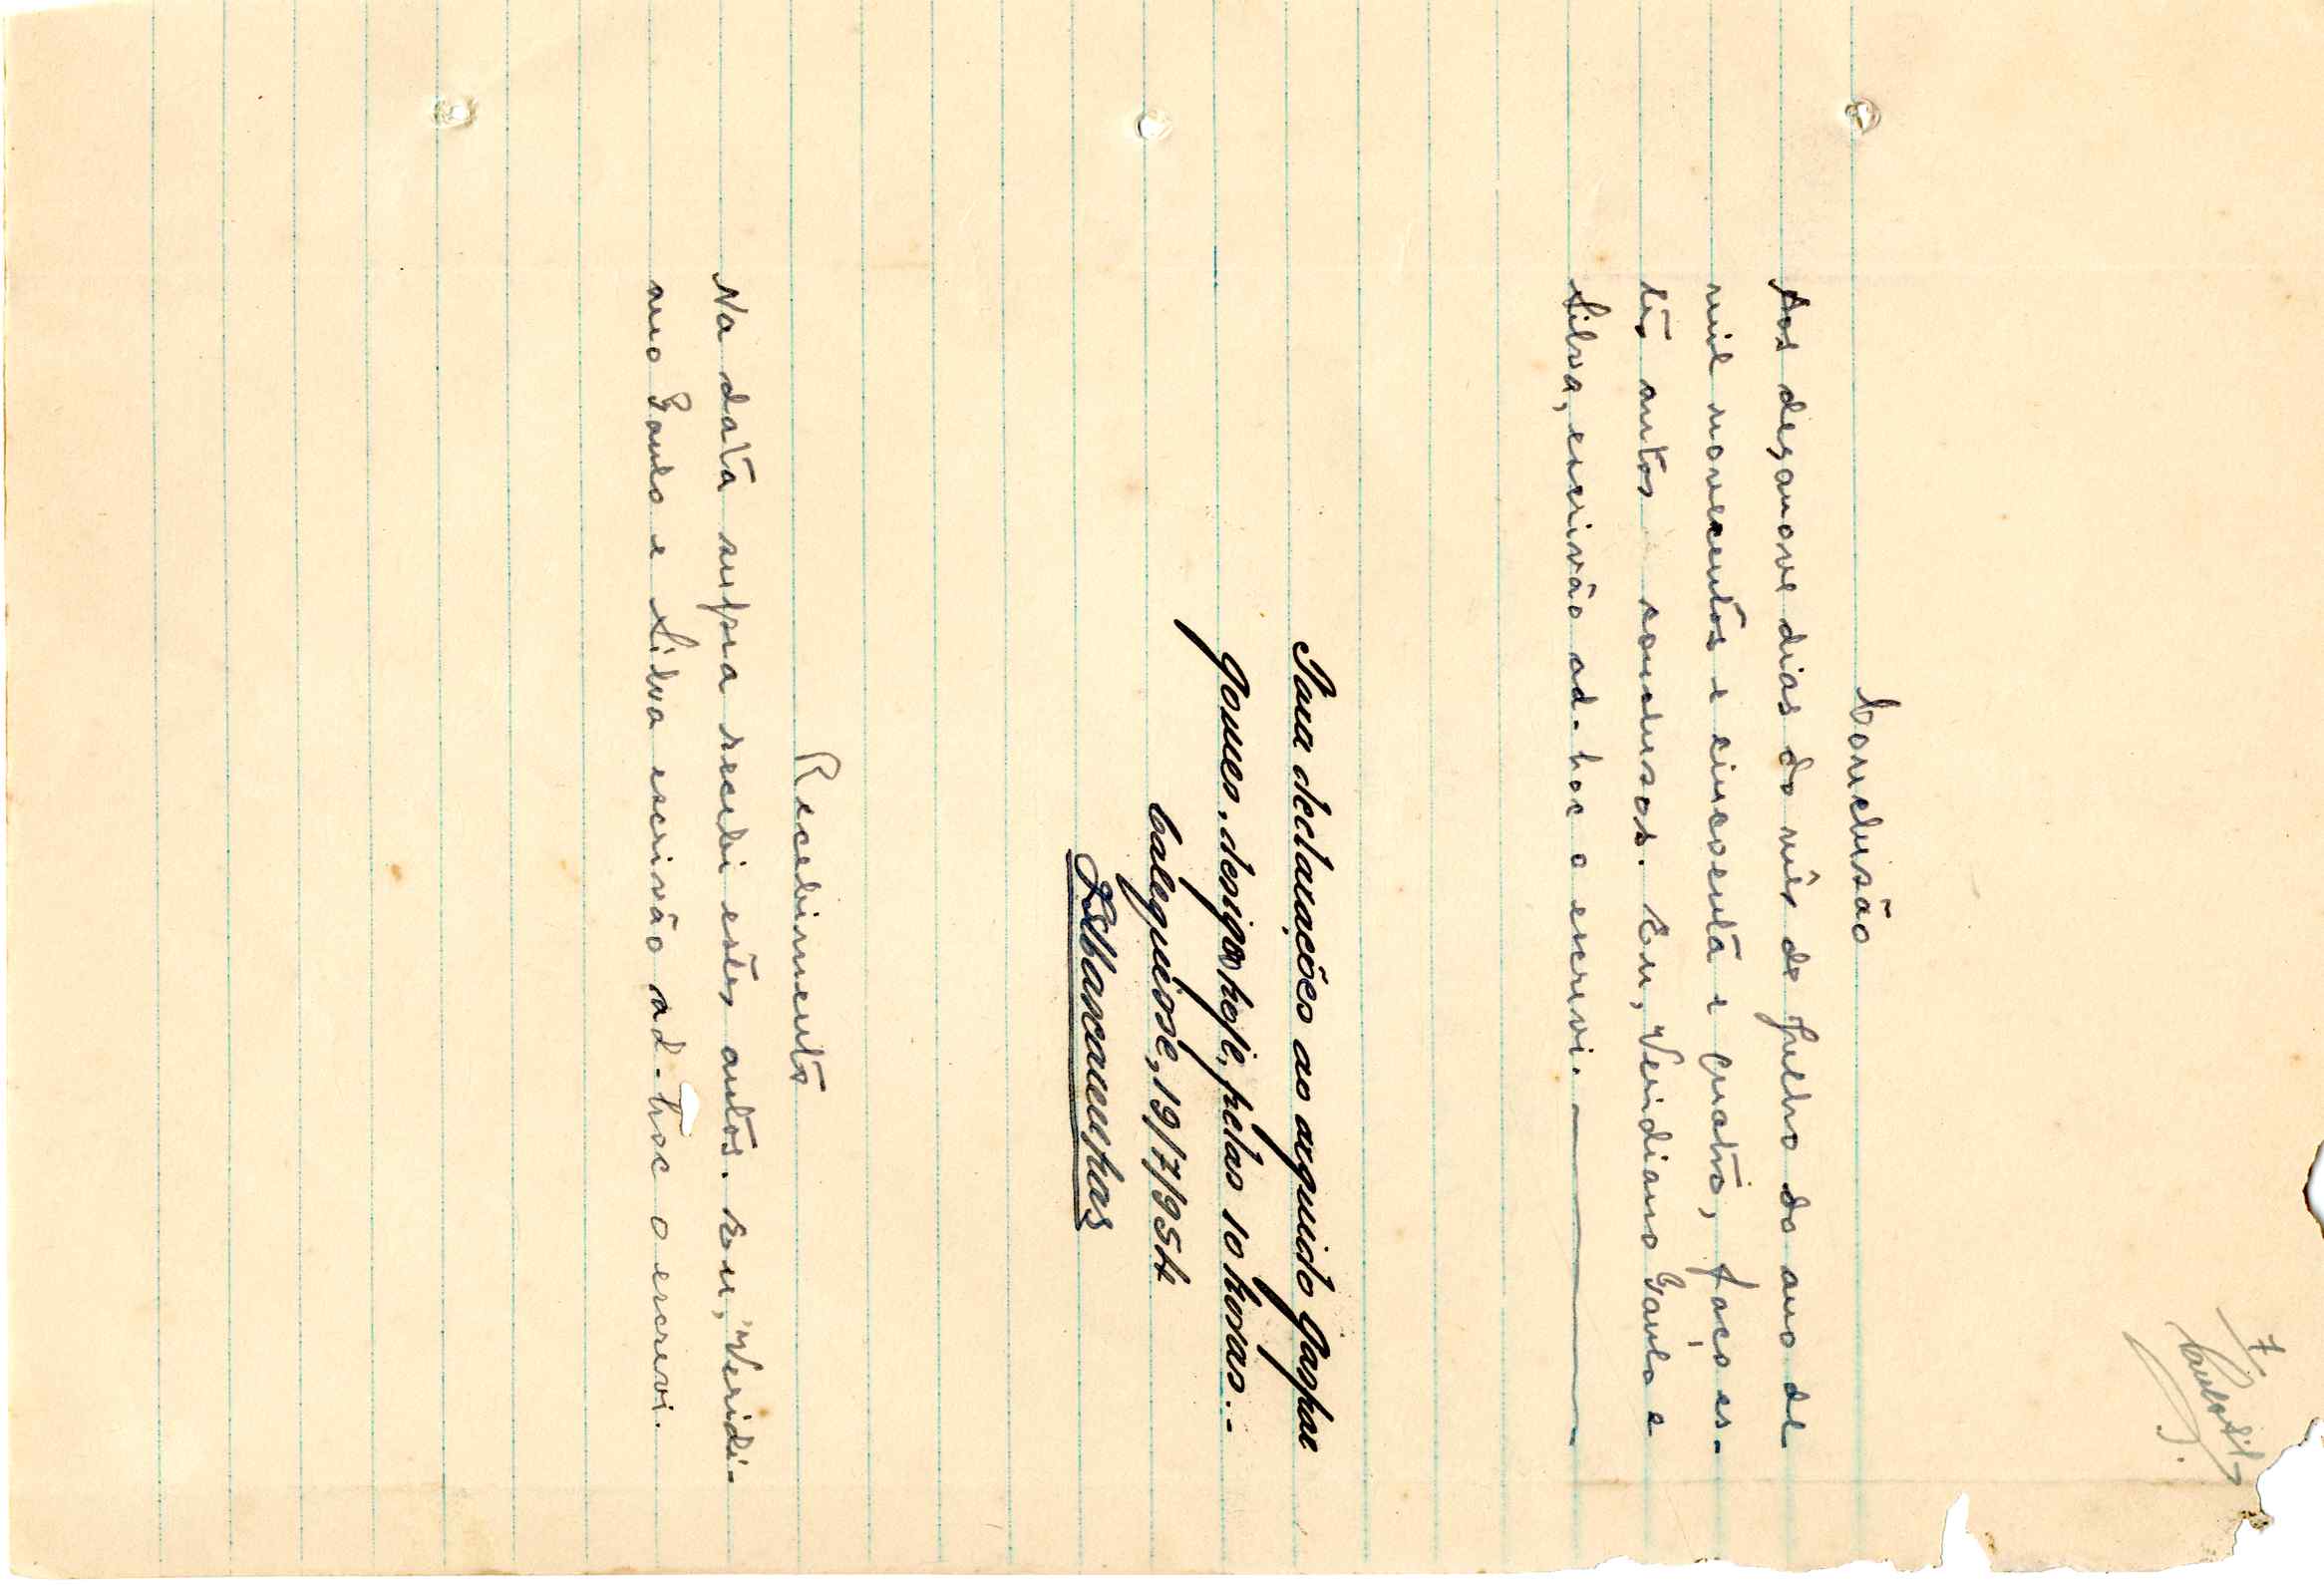 7
Conclusão
Aos dezanove dias do mês de Julho do ano de
mil novecentos e cincoenta e quatro, faço es-
tes autos conclusos. Eu, Veridiano Paulo e
Silva, escrivão ad-hoc o escrevi.
Para declarações ao arguido Gaspar
Gomes, designo hoje, pelas 10 horas.-
Calequiosse, 19/7/954
Recebimento
Na data supra recebi estes autos. Eu, Veridi-
ano Paulo e Silva escrivão ad-hoc o escrevi.